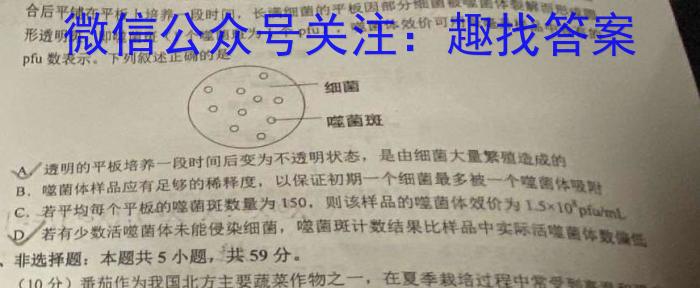 合后平铺在平板上培养一段时间，长满细菌的平板因部分细菌被噬菌体裂解而形
形透明
微信公众号关注：趣找答案
pfu 数表示。下列叙述正确的是
细菌
噬菌斑
A．透明的平板培养一段时间后变为不透明状态，是由细菌大量繁殖造成的
B．噬菌体样品应有足够的稀释度，以保证初期一个细菌最多被一个噬菌体吸附
C．若平均每个平板的噬菌斑数量为 150，则该样品的噬菌体效价为 1.5×10⁸pfu/mL
D．若有少数活噬菌体未能侵染细菌，噬菌斑计数结果比样品中实际活噬菌体数偏低
、非选择题：本题共 5 小题，共 59 分。
（10 分）番茄作为我国北方主要蔬菜作物之一，在夏季栽培过程中常受到高温